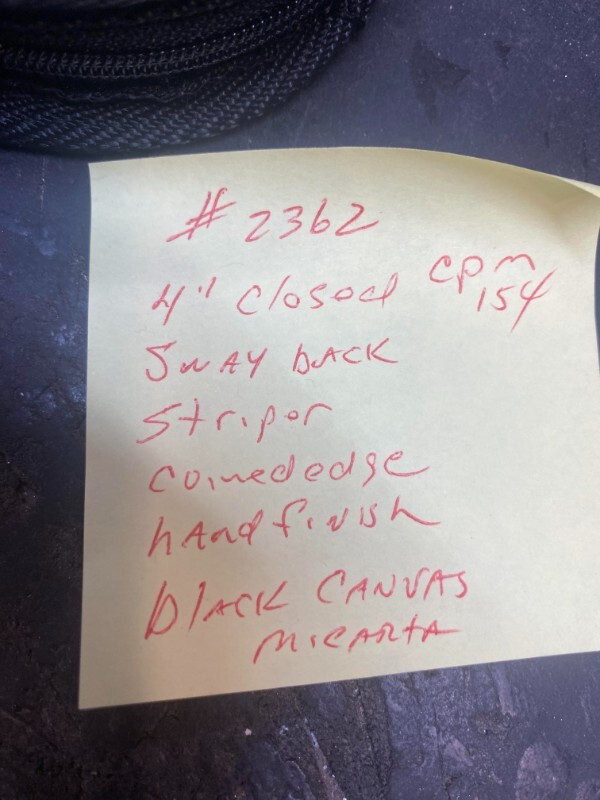 # 2362
4" closed cpm 154
Sway back
Striper
coinededge
hand finish
black CANVAS
MICARTA